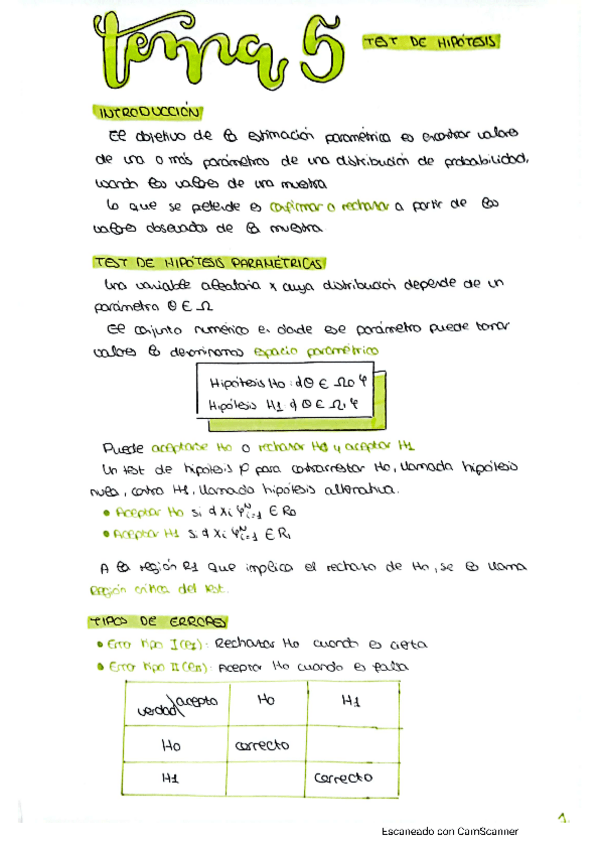 tema 5 TEST DE HIPÓTESIS
INTRODUCCIÓN
El objetivo de la estimación paramétrica es encontrar valores
de una o más parámetros de una distribución de probabilidad,
usando los valores de una muestra
Lo que se pretende es confirmar o rechazar a partir de los
valores observados de la muestra
TEST DE HIPÓTESIS PARAMÉTRICAS
Una variable aleatoria x cuya distribución depende de un
parámetra θ ∈ Ω
El conjunto numérico en donde ese parámetro puede tomar
valores lo denominamos espacio paramétrico
Hipótesis Ho: {θ ∈ Ω0}
Hipótesis H1 {θ ∈ Ω1}
Puede aceptarse Ho o rechazar Ho y aceptar H1
Un test de hipótesis p para contrarrestar Ho, llamada hipótesis
nula, contra H1, llamada hipótesis alternativa.
• Aceptar Ho si {Xi}ᴺᵢ₌₁ ∈ R0
• Aceptar H1 si {Xi}ᴺᵢ₌₁ ∈ R1
A la región R1 que implica el rechazo de Ho, se la llama
región crítica del test.
TIPOS DE ERRORES
• Error tipo I (eI): Rechazar Ho cuando es cierta
• Error tipo II (eII): Aceptar Ho cuando es falsa
verdad acepto Ho H1
Ho correcto
H1 correcto
1.
Escaneado con CamScanner